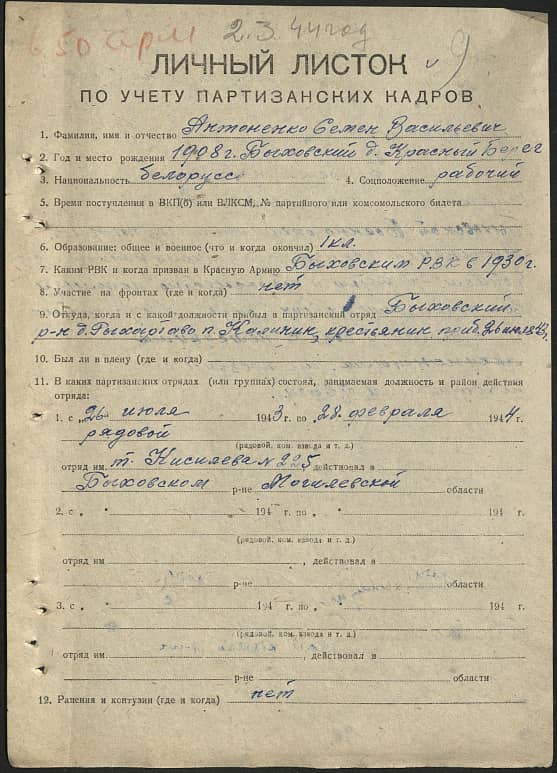 в 50 арм 2.3.44 год
9
ЛИЧНЫЙ ЛИСТОК
ПО УЧЕТУ ПАРТИЗАНСКИХ КАДРОВ
1. Фамилия, имя и отчество Антоненко Семен Васильевич
2. Год и место рождения 1908 г. Быховский д. Красный Берег
3. Национальность белорусс 4. Соцположение рабочий
5. Время поступления в ВКП(б) или ВЛКСМ, № партийного или комсомольского билета
6. Образование: общее и военное (что и когда окончил) 1 кл.
7. Каким РВК и когда призван в Красную Армию Быховским РВК в 1930 г.
8. Участие на фронтах (где и когда) нет
9. Откуда, когда и с какой должности прибыл в партизанский отряд Быховский
р-н д. п. Калинин, крестьянин 26 июля 43
10. Был ли в плену (где и когда)
11. В каких партизанских отрядах (или группах) состоял, занимаемая должность и район действия
отряда:
1. с „26 июля 1943 г. по 28 февраля 1944 г.
рядовой
(рядовой, ком. взвода и т. д.)
отряд им. т. Кисилева № 225 действовал в
Быховском р-не Могилевской области
2. с „ " 194 г. по „ " 194 г.
(рядовой, ком. взвода и т. д.)
отряд им , действовал в
р-не области
3. с „ " 194 г. по „ " 194 г.
(рядовой, ком. взвода и т. д.)
отряд им , действовал в
р-не области
12. Ранения и контузии (где и когда) нет